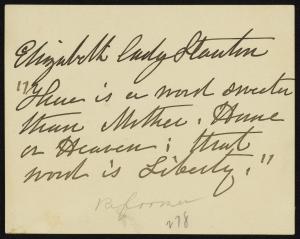 Elizabeth Cady Stanton
"There is a word sweeter
than Mother, Home
or Heaven; that
word is Liberty."
Reformer
278